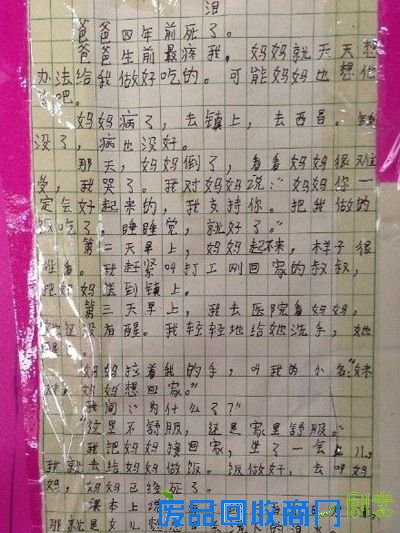 泪
爸爸四年前死了。
爸爸生前最疼我，妈妈就天天想
办法给我做好吃的。可能妈妈也想他
了吧。
妈妈病了，去镇上，去西昌。钱
没了，病也没好。
那天，妈妈倒了，看着妈妈很难
受，我哭了。我对妈妈说：“妈妈你一
定会好起来的，我支持你。把我做的
饭吃了，睡睡觉，就好了。”
第二天早上，妈妈起不来，样子很
难看。我赶紧叫打工刚回家的叔叔，
把妈妈送到镇上。
第三天早上，我去医院看妈妈，
她还没有醒。我轻轻地给她洗手，她
醒了。
妈妈拉着我的手，叫我的小名：“妹
妈妈想回家。”
我问：“为什么了？”
“这里不舒服，还是家里舒服。”
我把妈妈接回家，坐了一会儿，
我就去给妈妈做饭。饭做好，去叫妈
妈，妈妈已经死了。
课本上说
那就是女儿想
废品回收商网